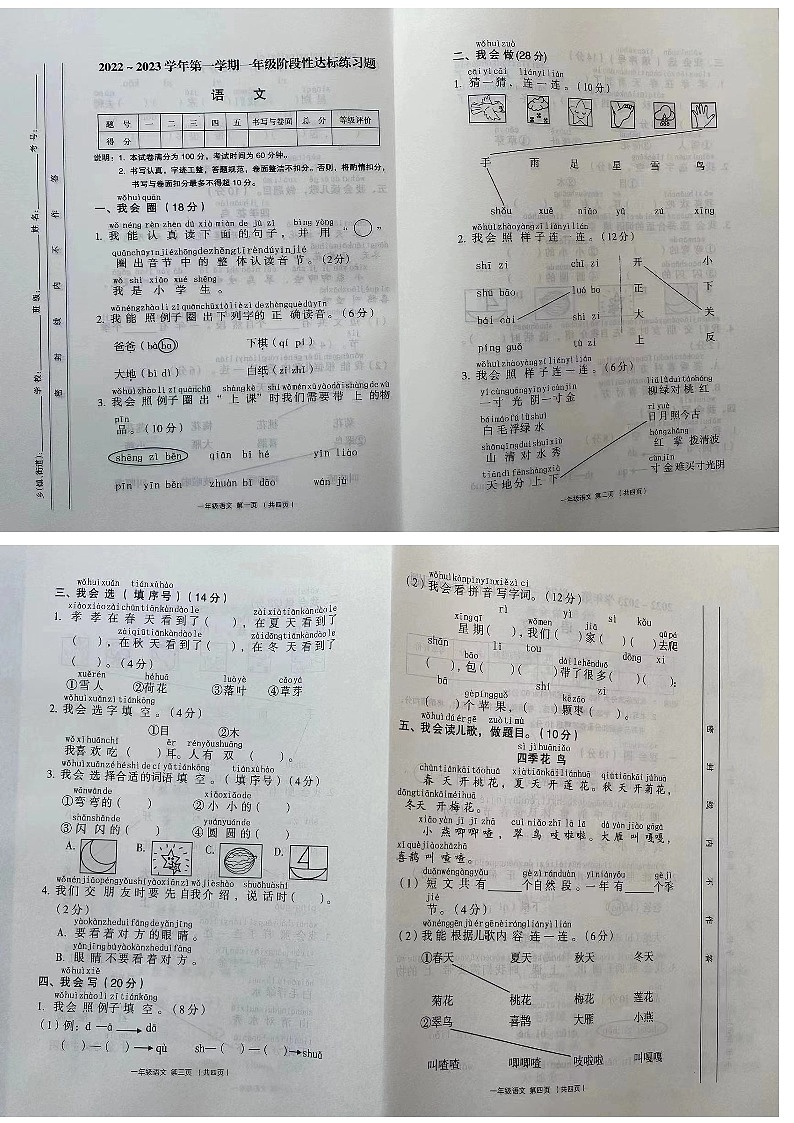 2022～2023学年第一学期一年级阶段性达标练习题
语 文
题 号 一 二 三 四 五 书写与卷面 总 分 等级评价
得 分
说明：1. 本试卷满分为100分，考试时间为60分钟。
2. 书写认真，字迹工整，答题规范，卷面整洁不扣分。否则，将酌情扣分，
书写与卷面扣分最多不得超10分。
wǒ huì quān
一、我会圈（18分）
wǒ néng rèn zhēn dú xià miàn de jù zǐ bìng yòng
1. 我 能 认 真 读 下 面 的 句 子 ， 并 用 “ ”
quān chū yīn jié zhōng de zhěng tǐ rèn dú yīn jié
圈 出 音 节 中 的 整 体 认 读 音 节 。（2分）
wǒ shì xiǎo xué shēng
我 是 小 学 生 。
2. 我 能 照 例 子 圈 出 下 列 字 的 正 确 读 音 。（6分）
爸爸（bà ba） 下棋（qí pí）
大地（bì dì） 白纸（zǐ zhǐ）
3. 我 会 照 例 子 圈 出 “ 上 课” 时 我 们 需 要 带 上 的 物
pǐn
品 。（10分）
shēng zì běn qiān bǐ hé yǐn liào
pīn yīn běn zhuàn bǐ dāo wán jù
一年级语文 第一页 （共四页）
乡(镇、街道): 学校: 班级: 姓名: 考号:
密 封 线 内 不 作 答
wǒ huì zuò
二、我 会 做(28分)
cāi yì cāi lián yì lián
1. 猜 一 猜 ， 连 一 连 。（10分）
手 雨 足 星 雪 鸟
shǒu xuě niǎo yǔ zú xīng
2. 我 会 照 样 子 连 一 连 。（12分）
shī zi chǐ zi 开 小
shū bāo luó bo 正 下
bái cài shī zi 大 关
píng guǒ tù zi 上 反
3. 我 会 照 样 子 连 一 连 。（6分）
yí cùn guāng yīn yí cùn jīn
一 寸 光 阴 一 寸 金 柳绿对 桃 红
bái máo fú lǜ shuǐ rì yuè
白 毛 浮 绿 水 日月照今古
shān qīng duì shuǐ xiù hóng zhǎng
山 清 对 水 秀 红 掌 拨清波
tiān dì fēn shàng xià cùn jīn
天 地 分 上 下 寸金难买寸光阴
一年级语文 第二页 （共四页）
wǒ huì xuǎn tián xù hào
三、我 会 选 （ 填 序 号 ）（14分）
xiào xiao zài chūn tiān kàn dào le zài xià tiān kàn dào le
1. 孝 孝 在 春 天 看 到 了（ ），在 夏 天 看 到 了
zài qiū tiān kàn dào le zài dōng tiān kàn dào le
（ ），在 秋 天 看 到 了（ ），在 冬 天 看 到 了
（ ）。（4分）
xuě rén hé huā luò yè cǎo yá
①雪 人 ②荷花 ③落叶 ④草芽
wǒ huì xuǎn zì tián kòng
2. 我 会 选 字 填 空 。（4分）
①目 ②木
wǒ xǐ huān chī ěr rén yǒu shuāng
我喜 欢 吃（ ）耳。人 有 双 （ ）。
3. 我 会 选 择合适的词语 填 空 。（ 填 序号）（4分）
wān wān de xiǎo xiǎo de
①弯 弯 的（ ） ②小 小 的（ ）
shǎn shǎn de yuán yuán de
③闪 闪 的（ ） ④圆 圆 的（ ）
A. B. C. D.
4. 我 们 交 朋 友 时 要 先 自 我 介 绍 ，说 话 时（ ）。
（2分）
yào kàn zhe duì fāng de yǎn jīng
A. 要 看 着 对 方 的 眼 睛 。
yǎn jīng bú yào kàn zhe duì fāng
B. 眼 睛 不要 看 着 对 方 。
wǒ huì xiě
四、我 会 写（20分）
wǒ huì zhào lì zǐ tián kòng
1. 我 会 照 例子 填 空 。（8分）
（1）例：d —ā dā
（ ）—（ ） qù sh—（ ）—（ ） shuā
一年级语文 第三页 （共四页）
wǒ huì kàn pīn yīn xiě zì cí
（2）我 会 看 拼 音 写 字词。（12分）
rì yì sì kǒu
xīng qī wǒ men jiā qù pá
星 期（ ），我 们（ ）家（ ）（ ）去爬
shān lǐ tou dōng xi
bāo dài le hěn duō
（ ），包（ ）（ ）带了很 多（ ）（ ）：
bā shí zi
gè píng guǒ kē zǎo
（ ）个 苹 果，（ ）颗枣（ ）。
五、我会读儿歌，做题目。（10分）
sì jì huā niǎo
四季花 鸟
chūn tiān kāi táo huā xià tiān kāi lián huā qiū tiān kāi jú huā
春 天 开 桃 花 ，夏 天 开 莲 花 。秋 天 开 菊花，
dōng tiān kāi méi huā
冬天 开 梅花 。
xiǎo yàn jī jī zhā cuì niǎo zhī lā lā dà yàn jiào gā gā
小 燕 唧唧 喳 ， 翠 鸟 吱 啦啦 。大雁 叫 嘎嘎，
xǐ què jiào zhā zhā
喜鹊 叫 喳 喳 。
duǎn wén gòng yǒu gè zì rán duàn yì nián yǒu gè jì
（1） 短 文 共 有 个自然 段 。一 年 有 个季
jié
节 。（4分）
（2）我 能 根据儿歌内 容 连 一 连 。（6分）
①春天 夏天 秋天 冬天
菊花 桃花 梅花 莲花
②翠鸟 喜鹊 大雁 小燕
叫喳喳 唧唧喳 吱啦啦 叫嘎嘎
一年级语文 第四页 （共四页）
密 封 线 内 不 作 答